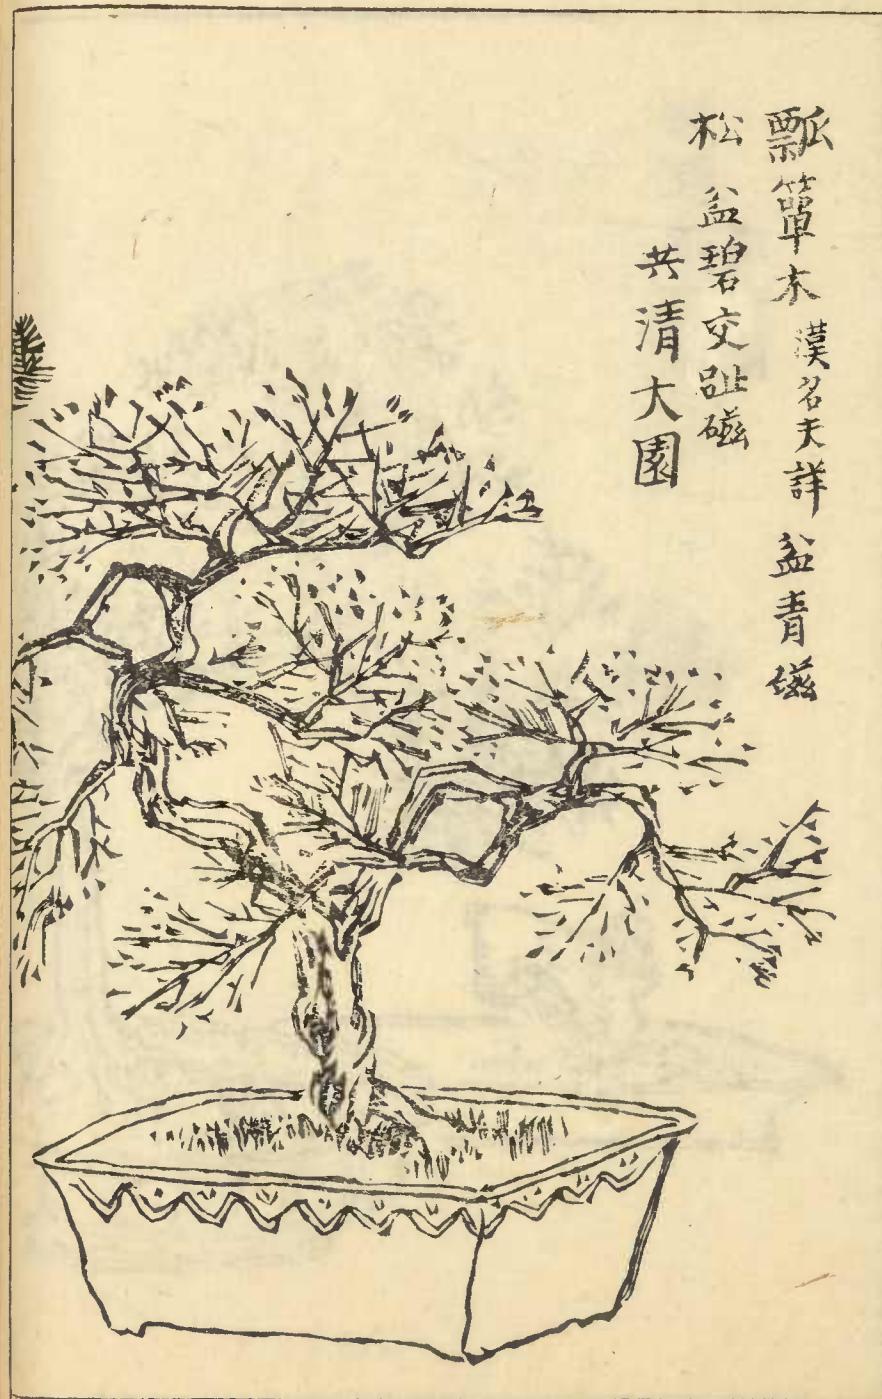 瓢箪木 漢名未詳 盆青磁
松 盆碧交趾磁
共清大園